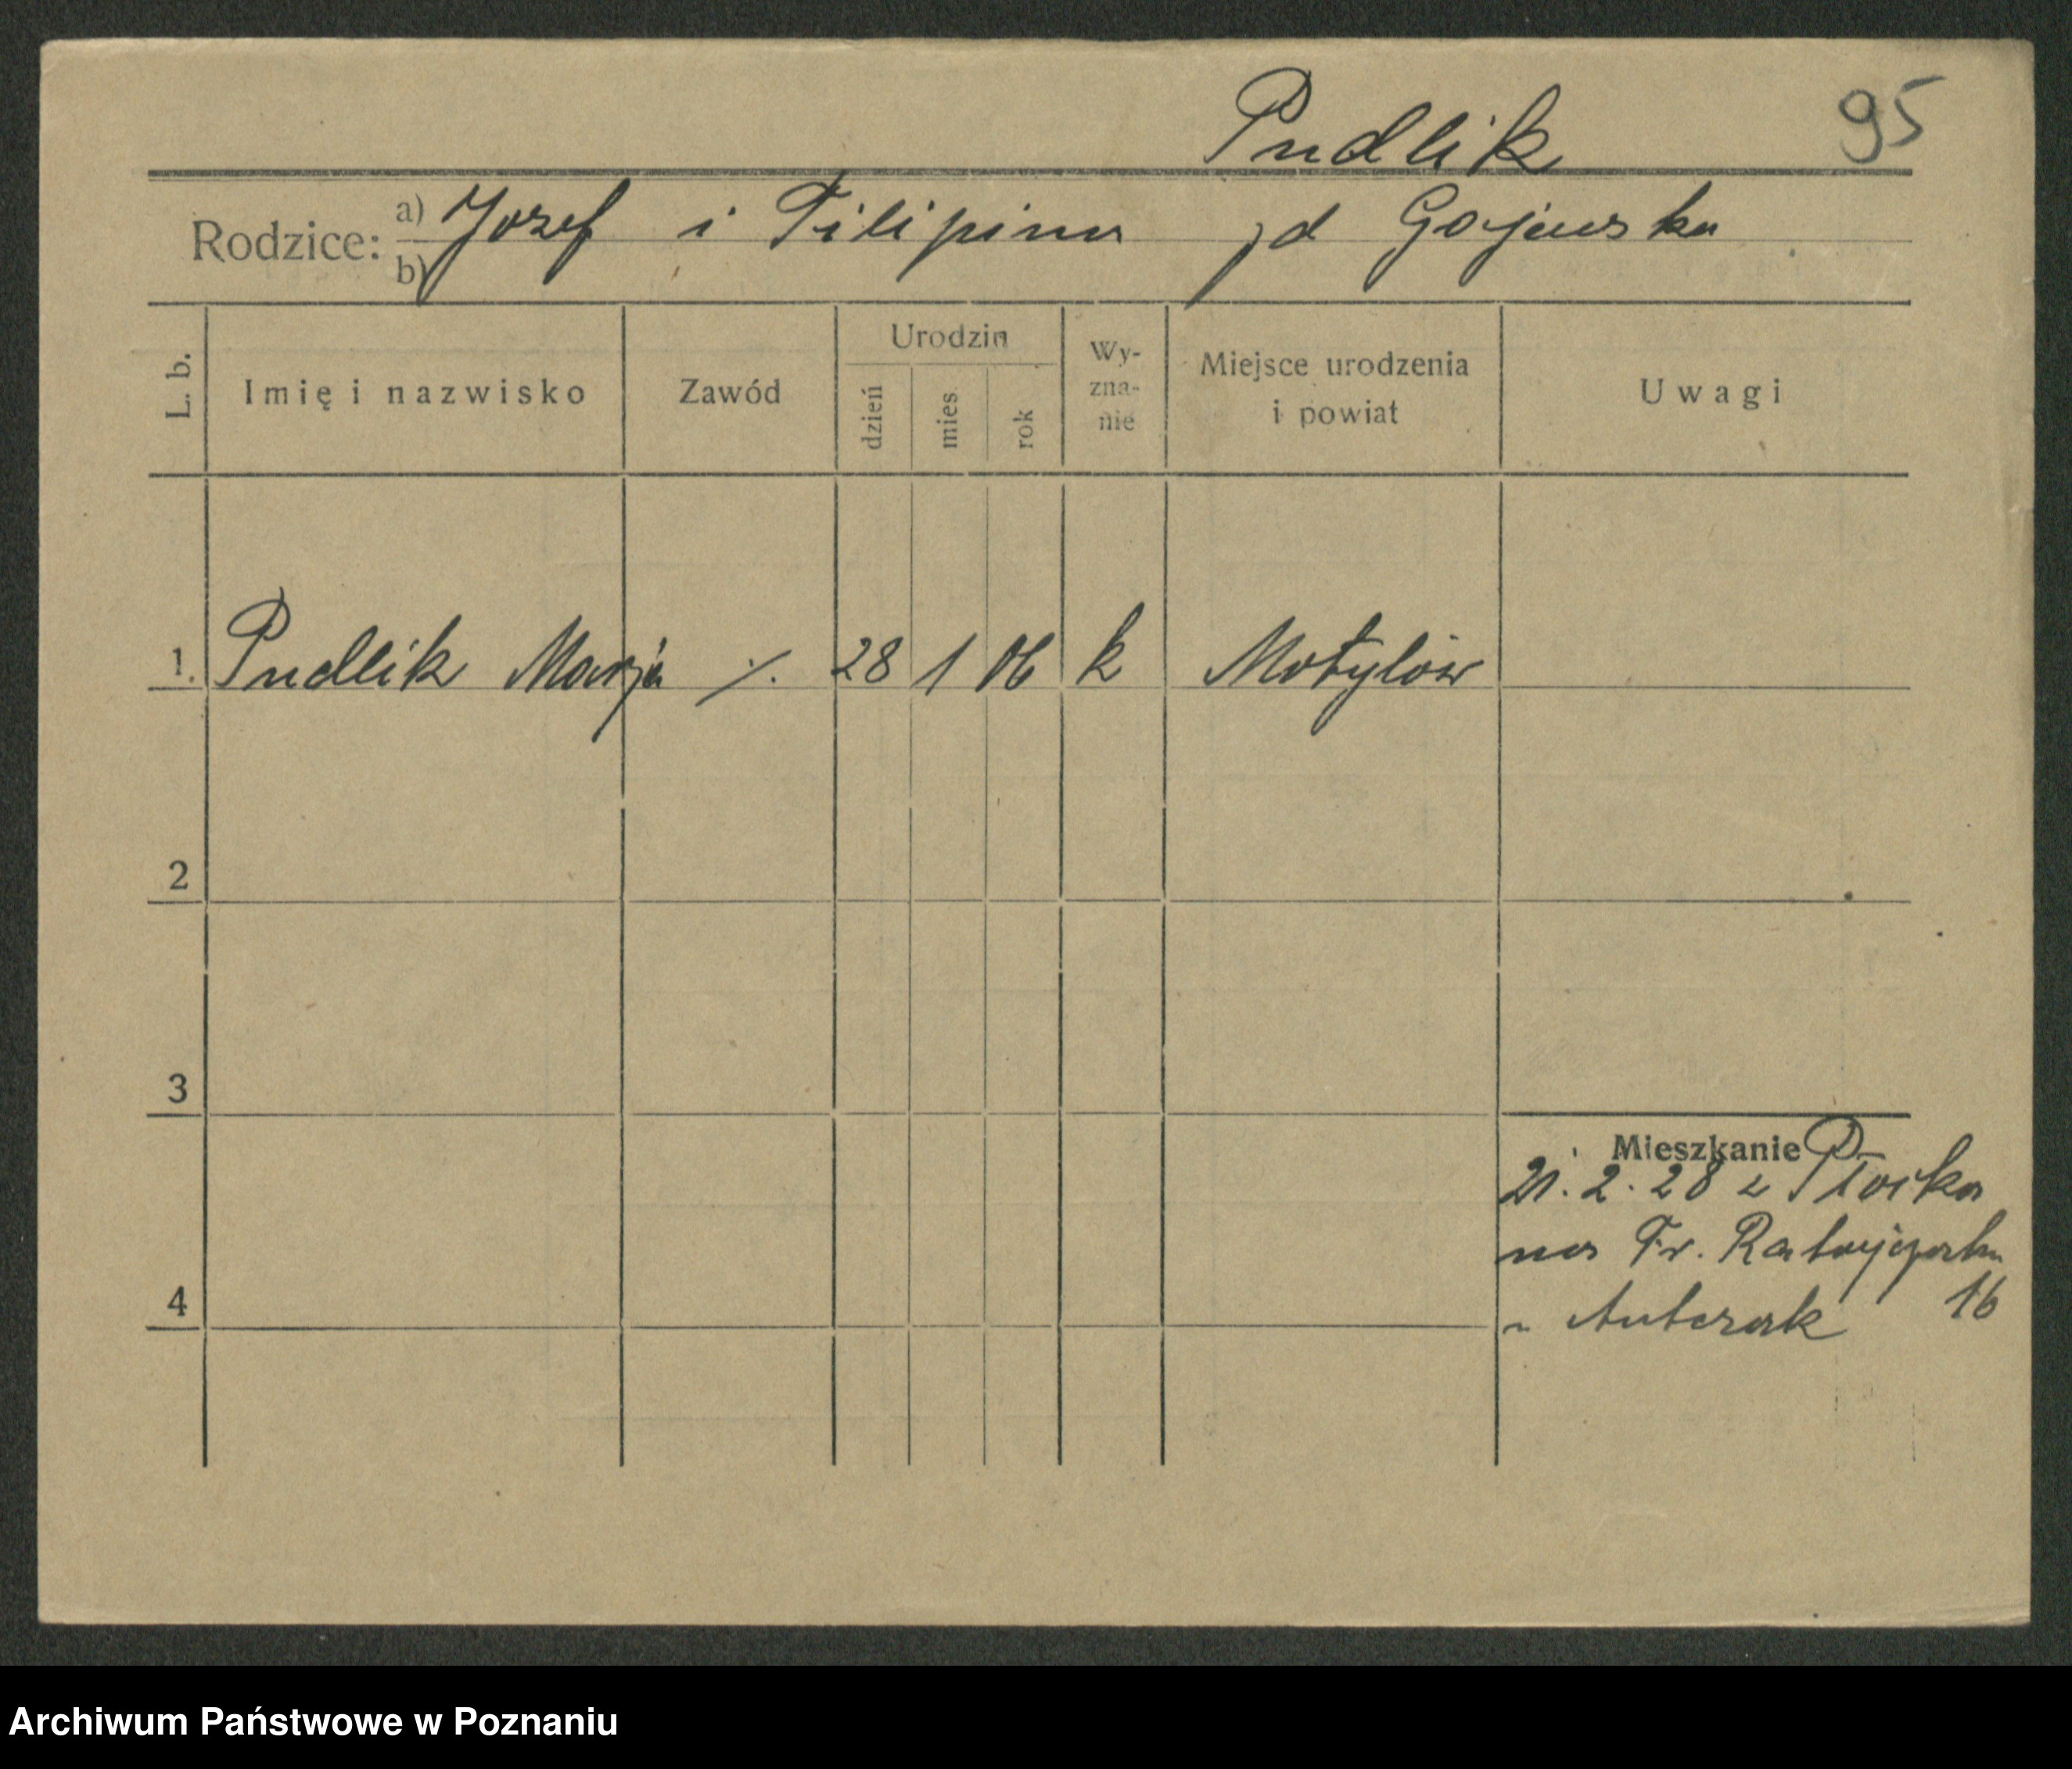 Pudlik 95
Rodzice: a) Jozef i Filipina zd Gajewska
b)
L. b. Imię i nazwisko Zawód Urodzin dzień mies rok Wy-zna-nie Miejsce urodzenia i powiat Uwagi
1. Pudlik Marja ./. 28 1 06 k Motylów
2
3
Mieszkanie
21. 2. 28 z Płocka
na Fr. Ratajczaka
4 16
u Antczak
Archiwum Państwowe w Poznaniu